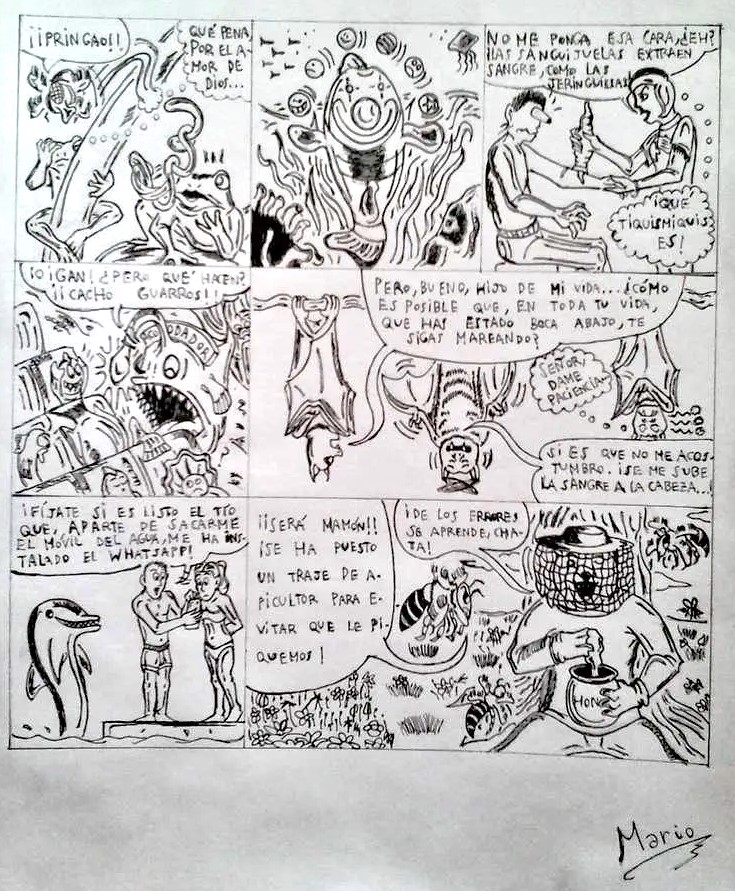 ¡¡PRINGAO!!
QUÉ PENA,
POR EL A-
MOR DE
DIOS...
NO ME PONGA ESA CARA, ¿EH?
¡LAS SANGUIJUELAS EXTRAEN
SANGRE, COMO LAS
JERINGUILLAS!
¡QUE
TIQUISMIQUIS
ES!
¡OIGAN! ¿PERO QUÉ HACEN?
¡¡CACHO GUARROS!!
PERO, BUENO, HIJO DE MI VIDA... ¿CÓMO
ES POSIBLE QUE, EN TODA TU VIDA,
QUE HAS ESTADO BOCA ABAJO, TE
SIGAS MAREANDO?
SEÑOR,
DAME
PACIENCIA...
SI ES QUE NO ME ACOS-
TUMBRO. ¡SE ME SUBE
LA SANGRE A LA CABEZA...!
¡FÍJATE SI ES LISTO EL TÍO
QUE, APARTE DE SACARME
EL MÓVIL DEL AGUA, ME HA INS-
TALADO EL WHATSAPP!
¡¡SERÁ MAMÓN!!
¡SE HA PUESTO
UN TRAJE DE A-
PICULTOR PARA E-
VITAR QUE LE PI-
QUEMOS!
¡DE LOS ERRORES
SE APRENDE, CHA-
TA!
HON
Mario